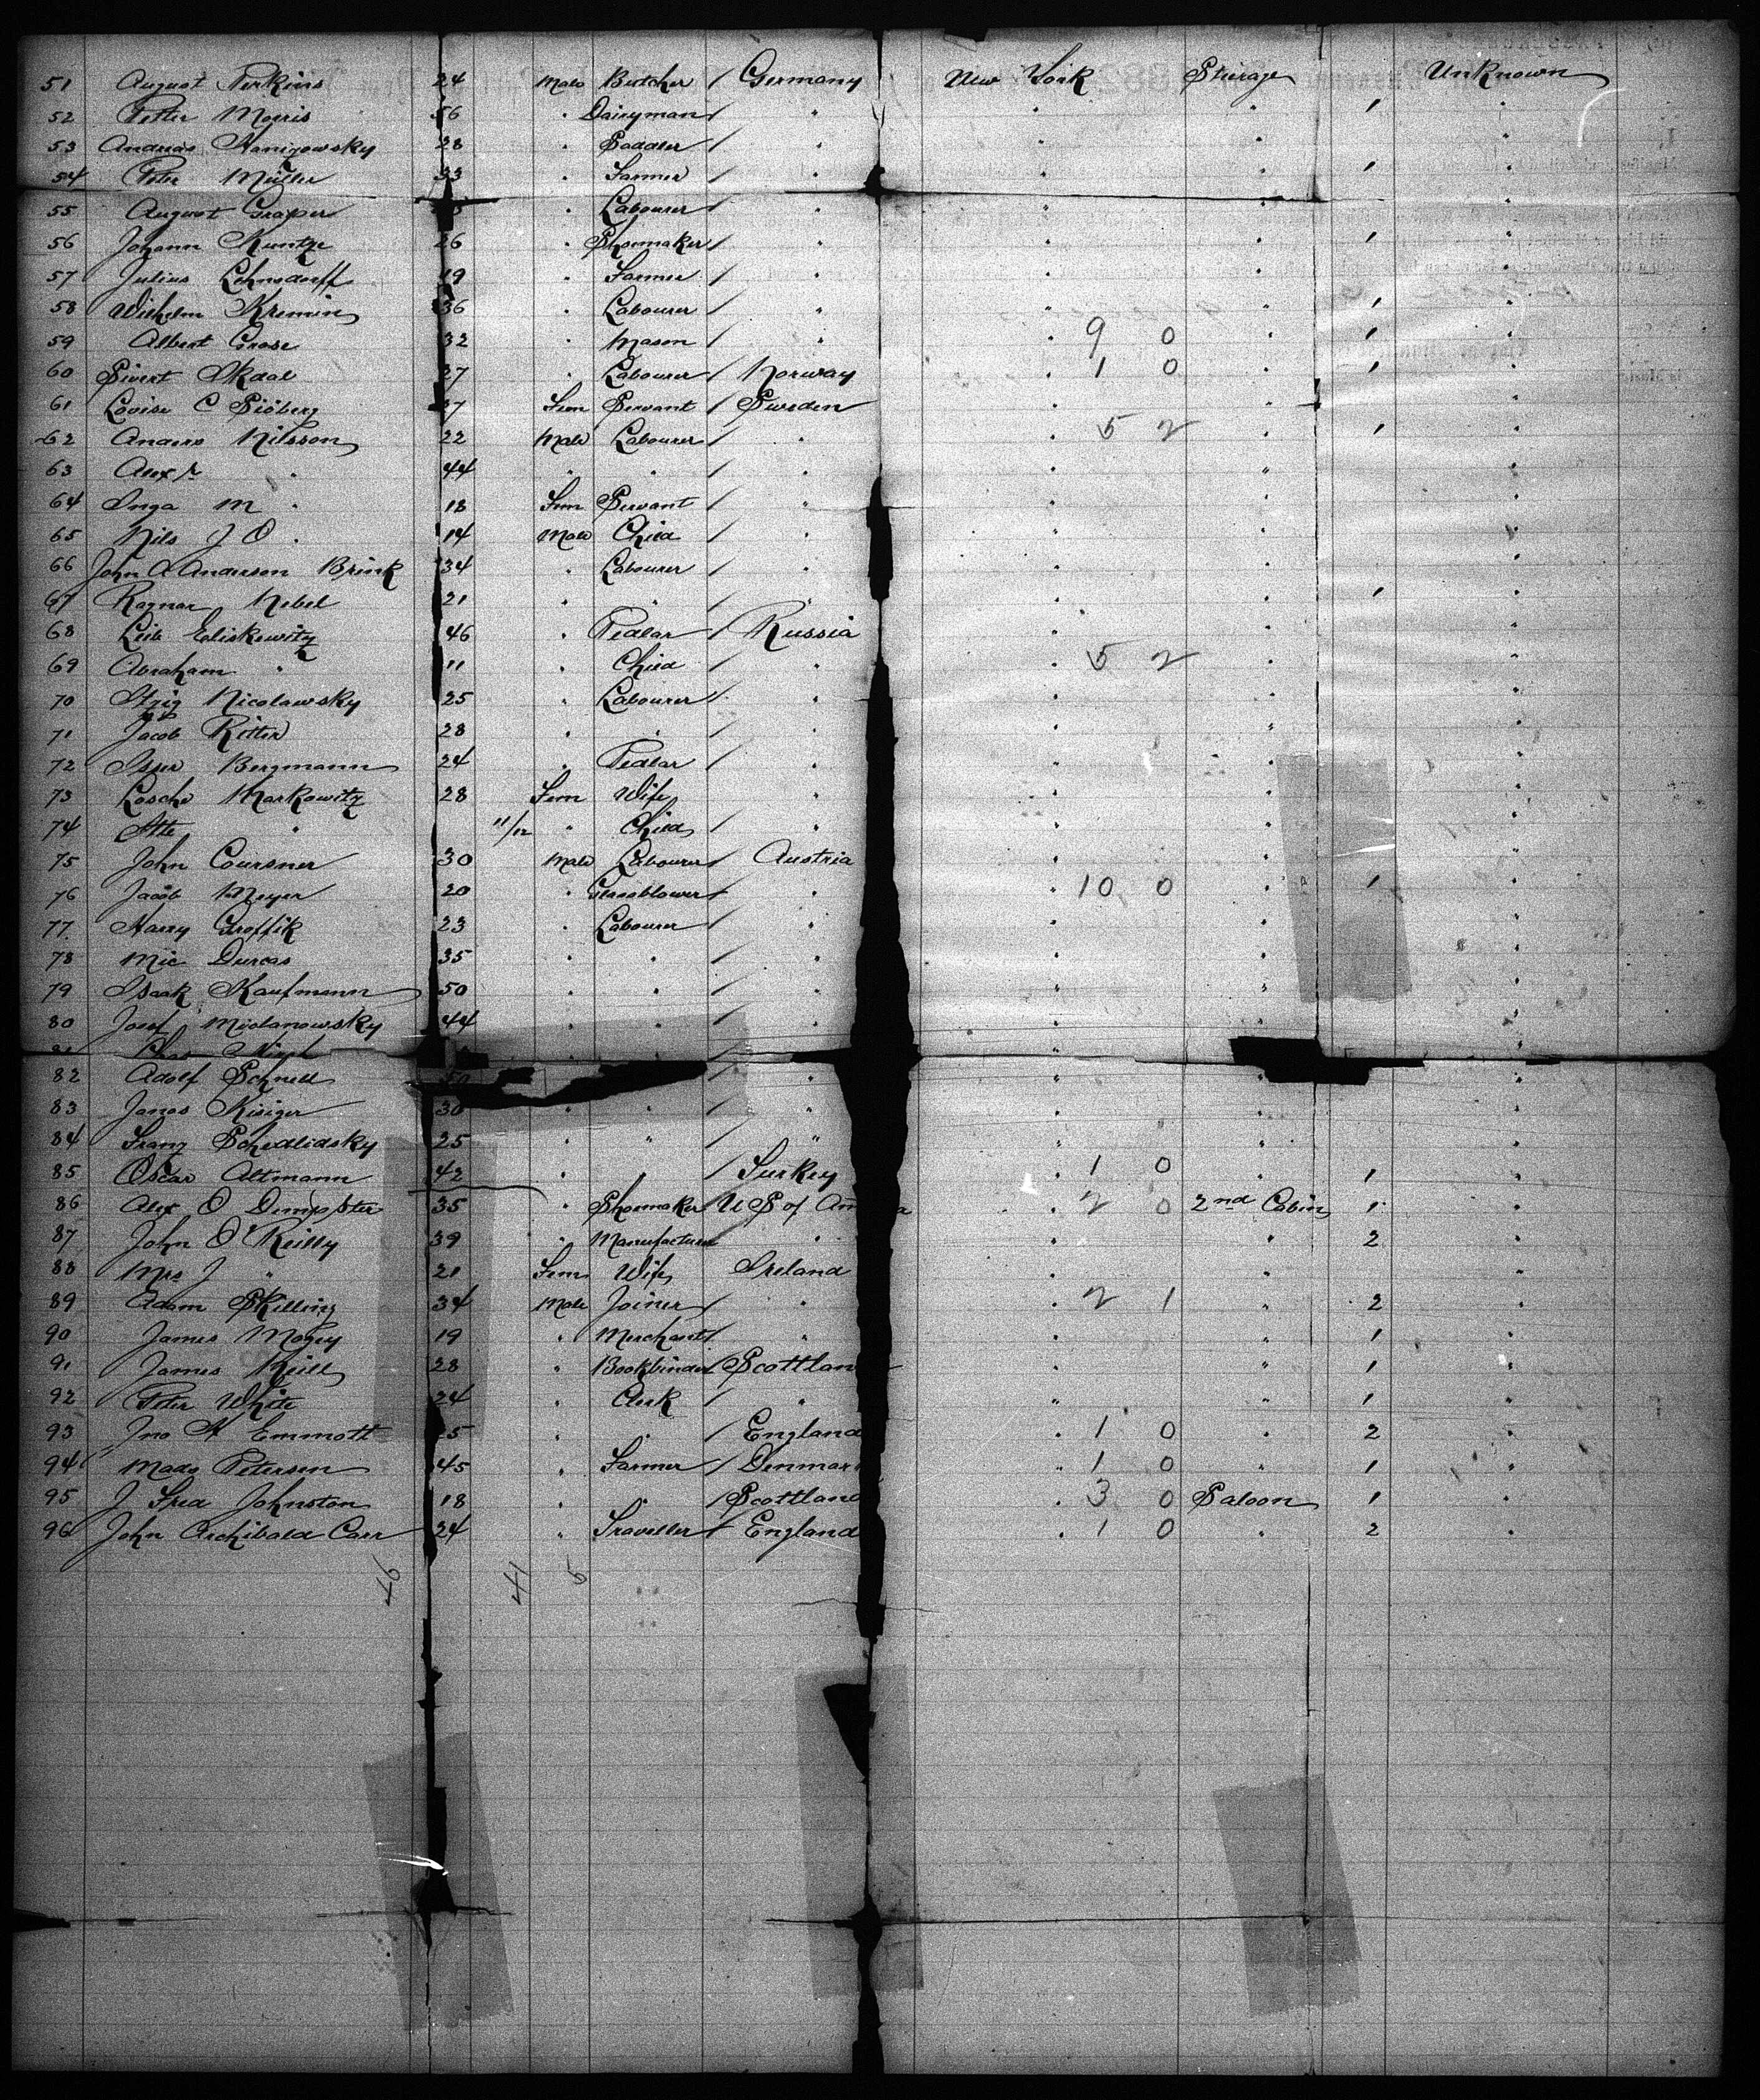 51 August Perkins 24 Male Butcher / Germany New York Steirage Unknown
52 Petter Morris 56 " Dairyman / " " " 1 "
53 Andreas Hanigowsky 28 " Saddler / " " " "
54 Peter Müller 33 " Farmer / " " " 1 "
55 August Graper " Labourer / " " " "
56 Johann Kuntze 26 " Shoemaker / " " " 1 "
57 Julius Lehnsdorff 19 " Farmer / " " " "
58 Wilhelm Kremin 36 " Labourer / " " " 1 "
59 Albert Grose 32 " Mason / " " 9 0 " 1 "
60 Sivert Skdal 37 " Labourer / Norway " 1 0 " 1 "
61 Lovise C Sjöberg 37 Fem Servant / Sweden " " "
62 Anders Nilsson 22 Male Labourer / " " 5 2 " 1 "
63 Alexr " 44 " " / " " " "
64 Inga M " 18 Fem Servant / " " " "
65 Nils J O " 14 Male Child / " " " "
66 John A Anderson Brink 34 " Labourer / " " " "
67 Ragnar Nebel 21 " " / " " " 1 "
68 Leib Eliskewitz 46 " Pedlar / Russia " " "
69 Abraham " 11 " Child / " " 5 2 " "
70 Nicolawsky 25 " Labourer / " " " "
71 Jacob Ritter 28 " " / " " " "
72 Isser Bergmann 24 " Pedlar / " " " "
73 Losche Markowitz 28 Fem Wife " " " "
74 Itte " 11/12 " Child / " " " "
75 John Coursner 30 Male Labourer / Austria " " "
76 Jacob Meyer 20 " Glassblower / " " 10 0 " 1 "
77 Harry Groffik 23 " Labourer / " " " "
78 Mic Durcas 35 " " / " " " "
79 Isaak Kaufmann 50 " " / " " " "
80 Josef Miclanowsky 44 " " / " " " "
82 Adolf Schnell 50 / " " " "
83 Janos Kisiger 30 " " / " " " "
84 Franz Schedlidsky 25 " " / " " " "
85 Oscar Altmann 42 " " / Turkey " 1 0 " 1 "
86 Alex O Dempster 35 " Shoemaker U S of Am a " 2 0 2nd Cabin 1 "
87 John O'Reilly 39 " Manufacturer " " " 2 "
88 Mrs J " 21 Fem Wife Ireland " " "
89 Adam Skilling 34 Male Joiner / " " 2 1 " 2 "
90 James Mogey 19 " Merchant / " " " 1 "
91 James Neill 28 " Bookbinder / Scottlan " " 1 "
92 Peter White 24 " Clerk / " " " 1 "
93 Jno H Emmott 25 " " / England " 1 0 " 2 "
94 Mads Petersen 45 " Farmer / Denmar " 1 0 " 1 "
95 J Fred Johnston 18 " " / Scottland " 3 0 Saloon 1 "
96 John Archibald Carr 24 " Traveller / England " 1 0 " 2 "
46 41 5